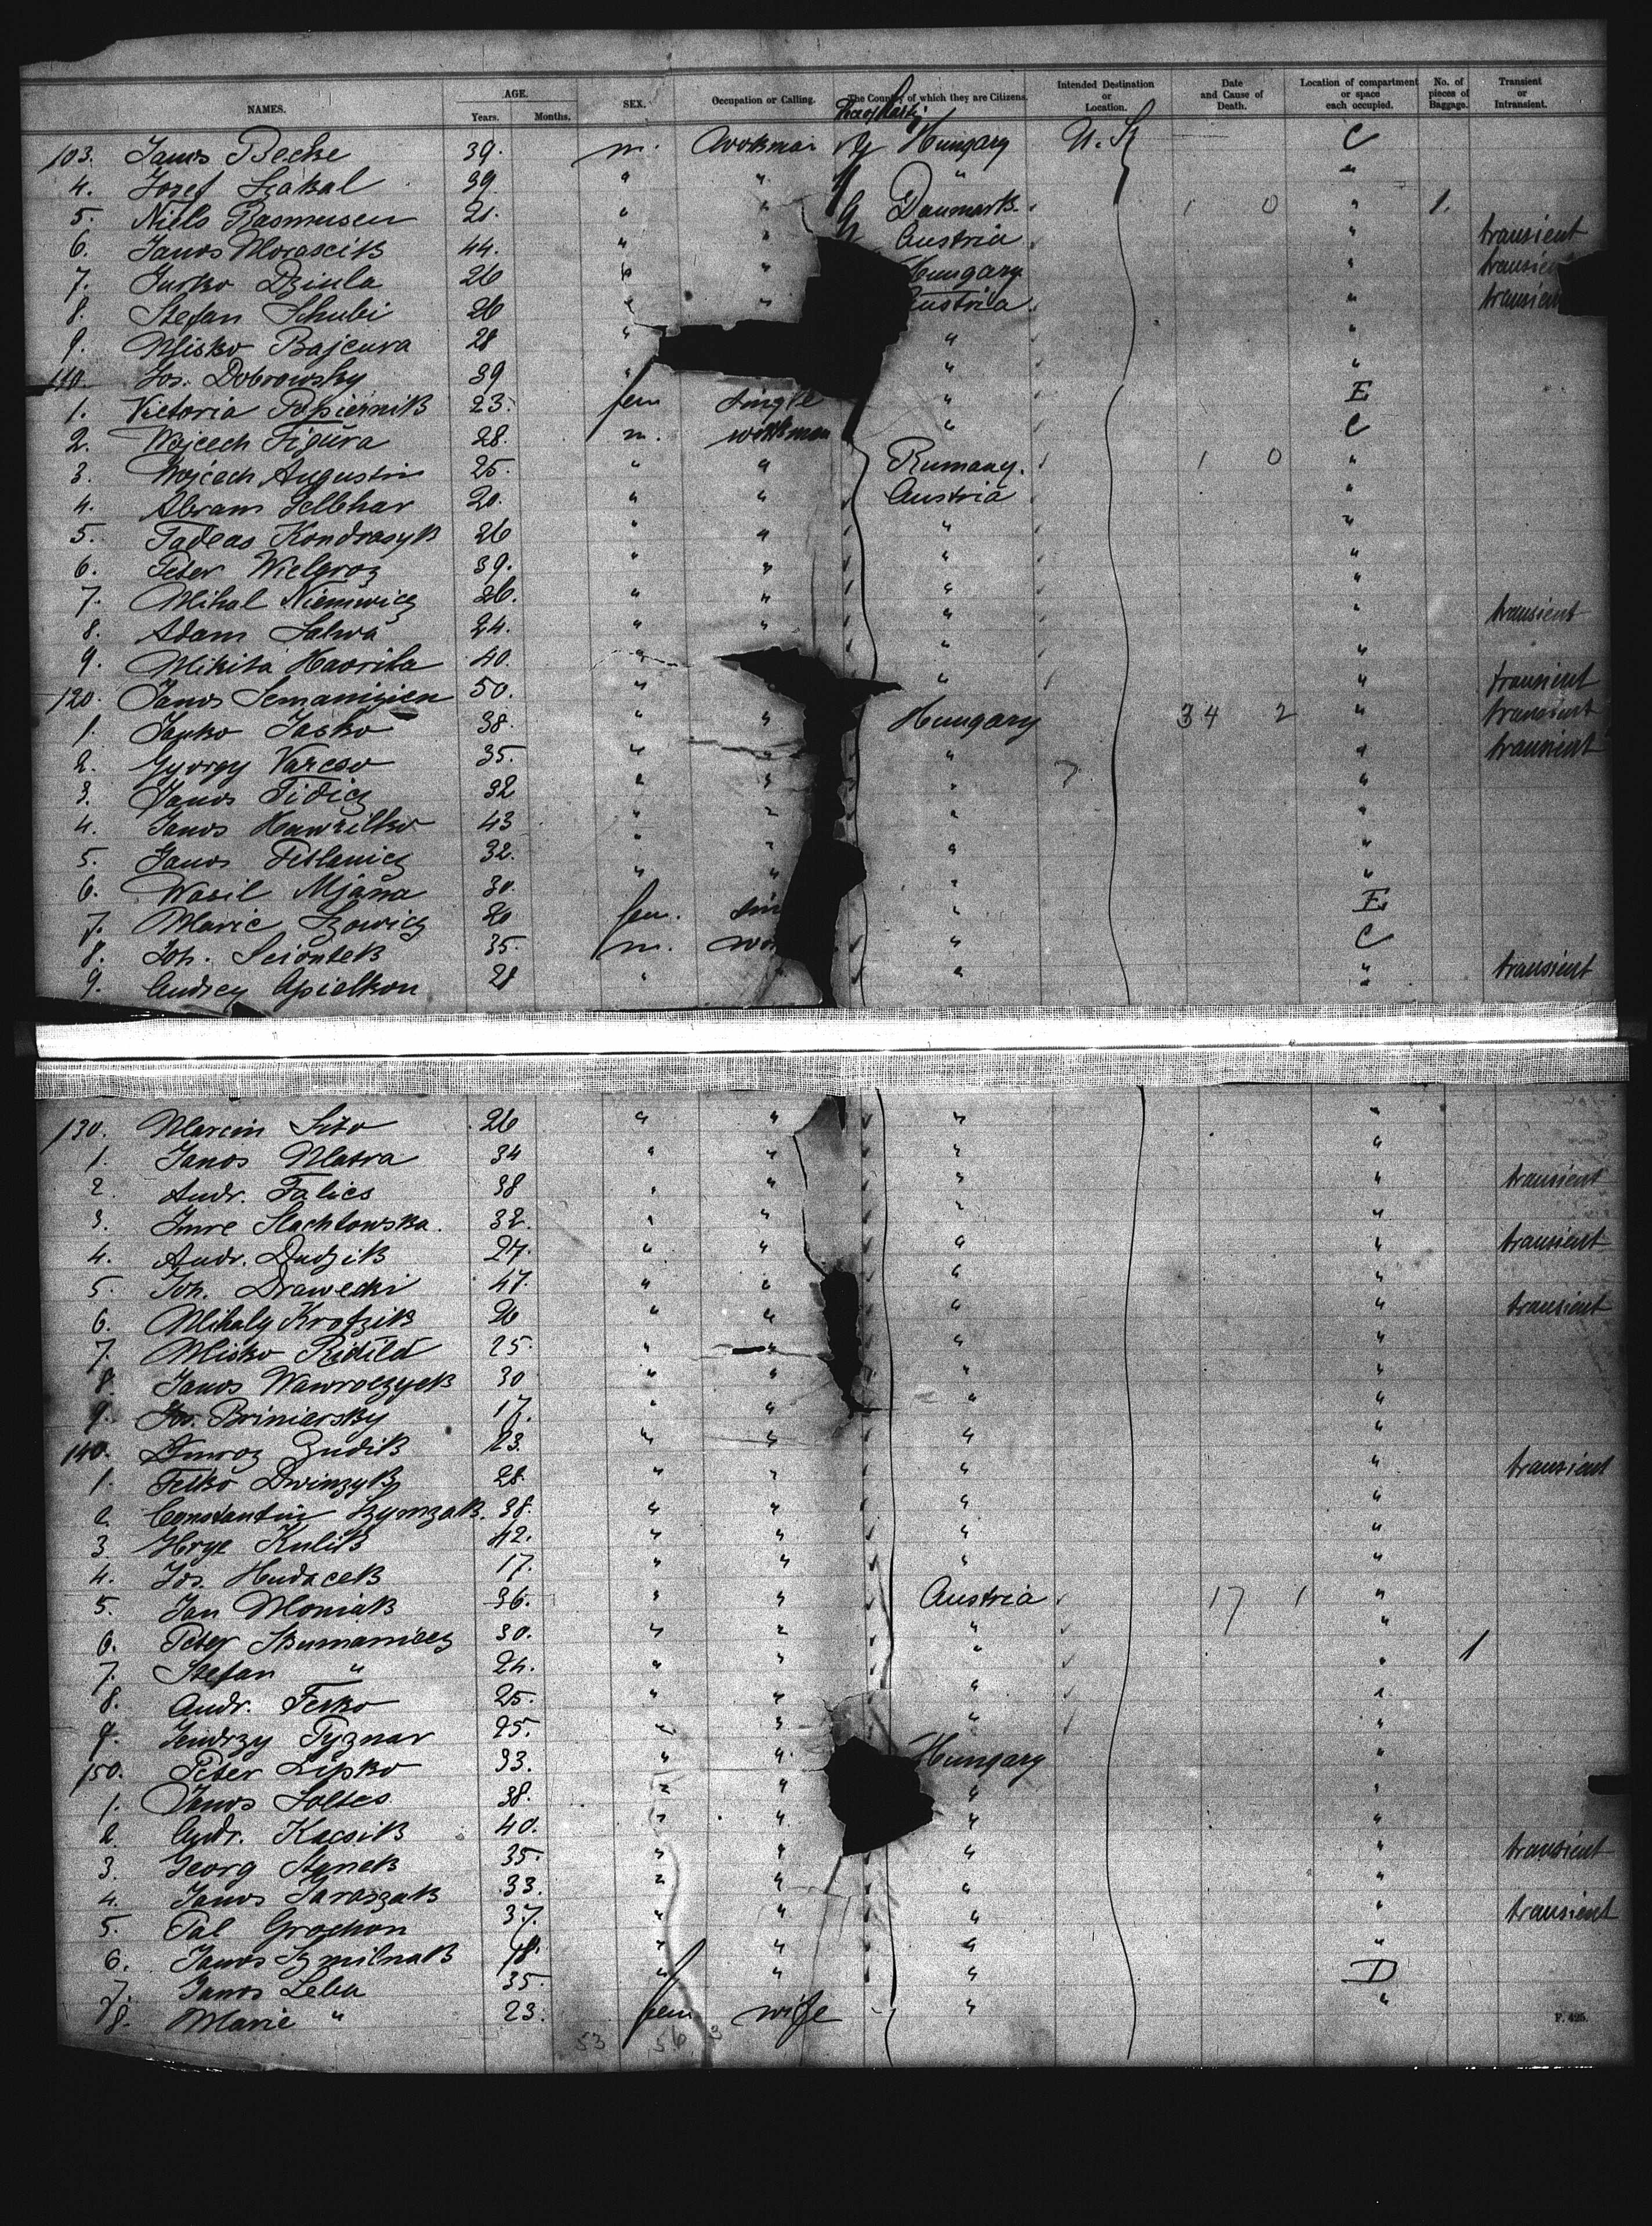 NAMES. AGE. Years. Months. SEX. Occupation or Calling. The Country of which they are Citizens. Intended Destination or Location. Date and Cause of Death. Location of compartment or space each occupied. No. of pieces of Baggage. Transient or Intransient.
103. Janos Becke 39. m. Hungary U. St C
4. Jozef Szakal 39 " " " "
5. Niels Rasmusen 21. " " Danmark. 1 0 " 1.
6. Janos Morascik 44. " " Austria " transient
7. Jurko Dziula 26 " " Hungary " transient
8. Stefan Schubi 26 " " Austria " transient
9. Misko Bajcura 28 " " "
110. Jos. Dobrowsky 39 " " "
1. Victoria Papiernik 23. fem single " E
2. Wojcech Figura 28. m. workman " C
3. Wojcech Augustin 25. " " Rumany. 1 0 "
4. Abram Gelbhar 20. " " Austria "
5. Tadeas Kondrasyk 26 " " " "
6. Peter Wielgroz 39. " " " "
7. Mihal Niemwicz 26. " " " "
8. Adam Salwa 24. " " " " transient
9. Mikita Havrila 40. " " "
120. Janos 50. " " " transient
1. Janko Jasko 38. " " Hungary 34 2 " transient
2. Gyorgy Varcso 35. " " " " transient
3. Janos Fidicz 32 " " " "
4. Janos Hawrilko 43 " " " "
5. Janos 32. " " " "
6. Wasil Mjana 30. " " " "
7. Marie Szowicz 20 fem. sin " E
8. Joh. Sciontek 35. m. wo " C
9. Andrey Apielkon 28 " " " transient
130. Marcin Sito 26 " " " "
1. Janos Matra 34 " " " "
2. Andr. Falics 38 " " " " transient
3. Imre Slachtowska. 32. " " " "
4. Andr. Dudzik 27. " " " " transient
5. Joh. Drawecki 47. " " " "
6. Mihaly Krotzik 26 " " " " transient
7. Misko Ridila 25. " " " "
8. Janos Wawroczyck 30 " " " "
9. Jos. Briniarsky 17. " " " "
140. Zudik 23. " " " "
1. Fesko Dwinzyk 28. " " " " transient
2 Constantin Szymzak. 38. " " " "
3 Hrye Kulik 42. " " " "
4. Jos. Hudacek 17. " " " "
5. Jan Moniak 36. " " Austria 17 1 "
6. Peter 30. " " " "
7. Stefan " 24. " " " " 1
8. Andr. Fesko 25. " " " "
9. Jendrzy Tyznar 25. " " " "
150. Peter Lipko 33. " " Hungary "
1. Janos Soltes 38. " " " "
2. Andr. Kacsik 40. " " " "
3. Georg Stanek 35. " " " " transient
4. Janos Taraszak 33. " " " "
5. Pal Grochon 37. " " " " transient
6. Janos Szmilnak 18. " " " "
7. Janos Leba 35. " " " D
8. Marie " 23. fem wife " "
53 56 3
P. 425.